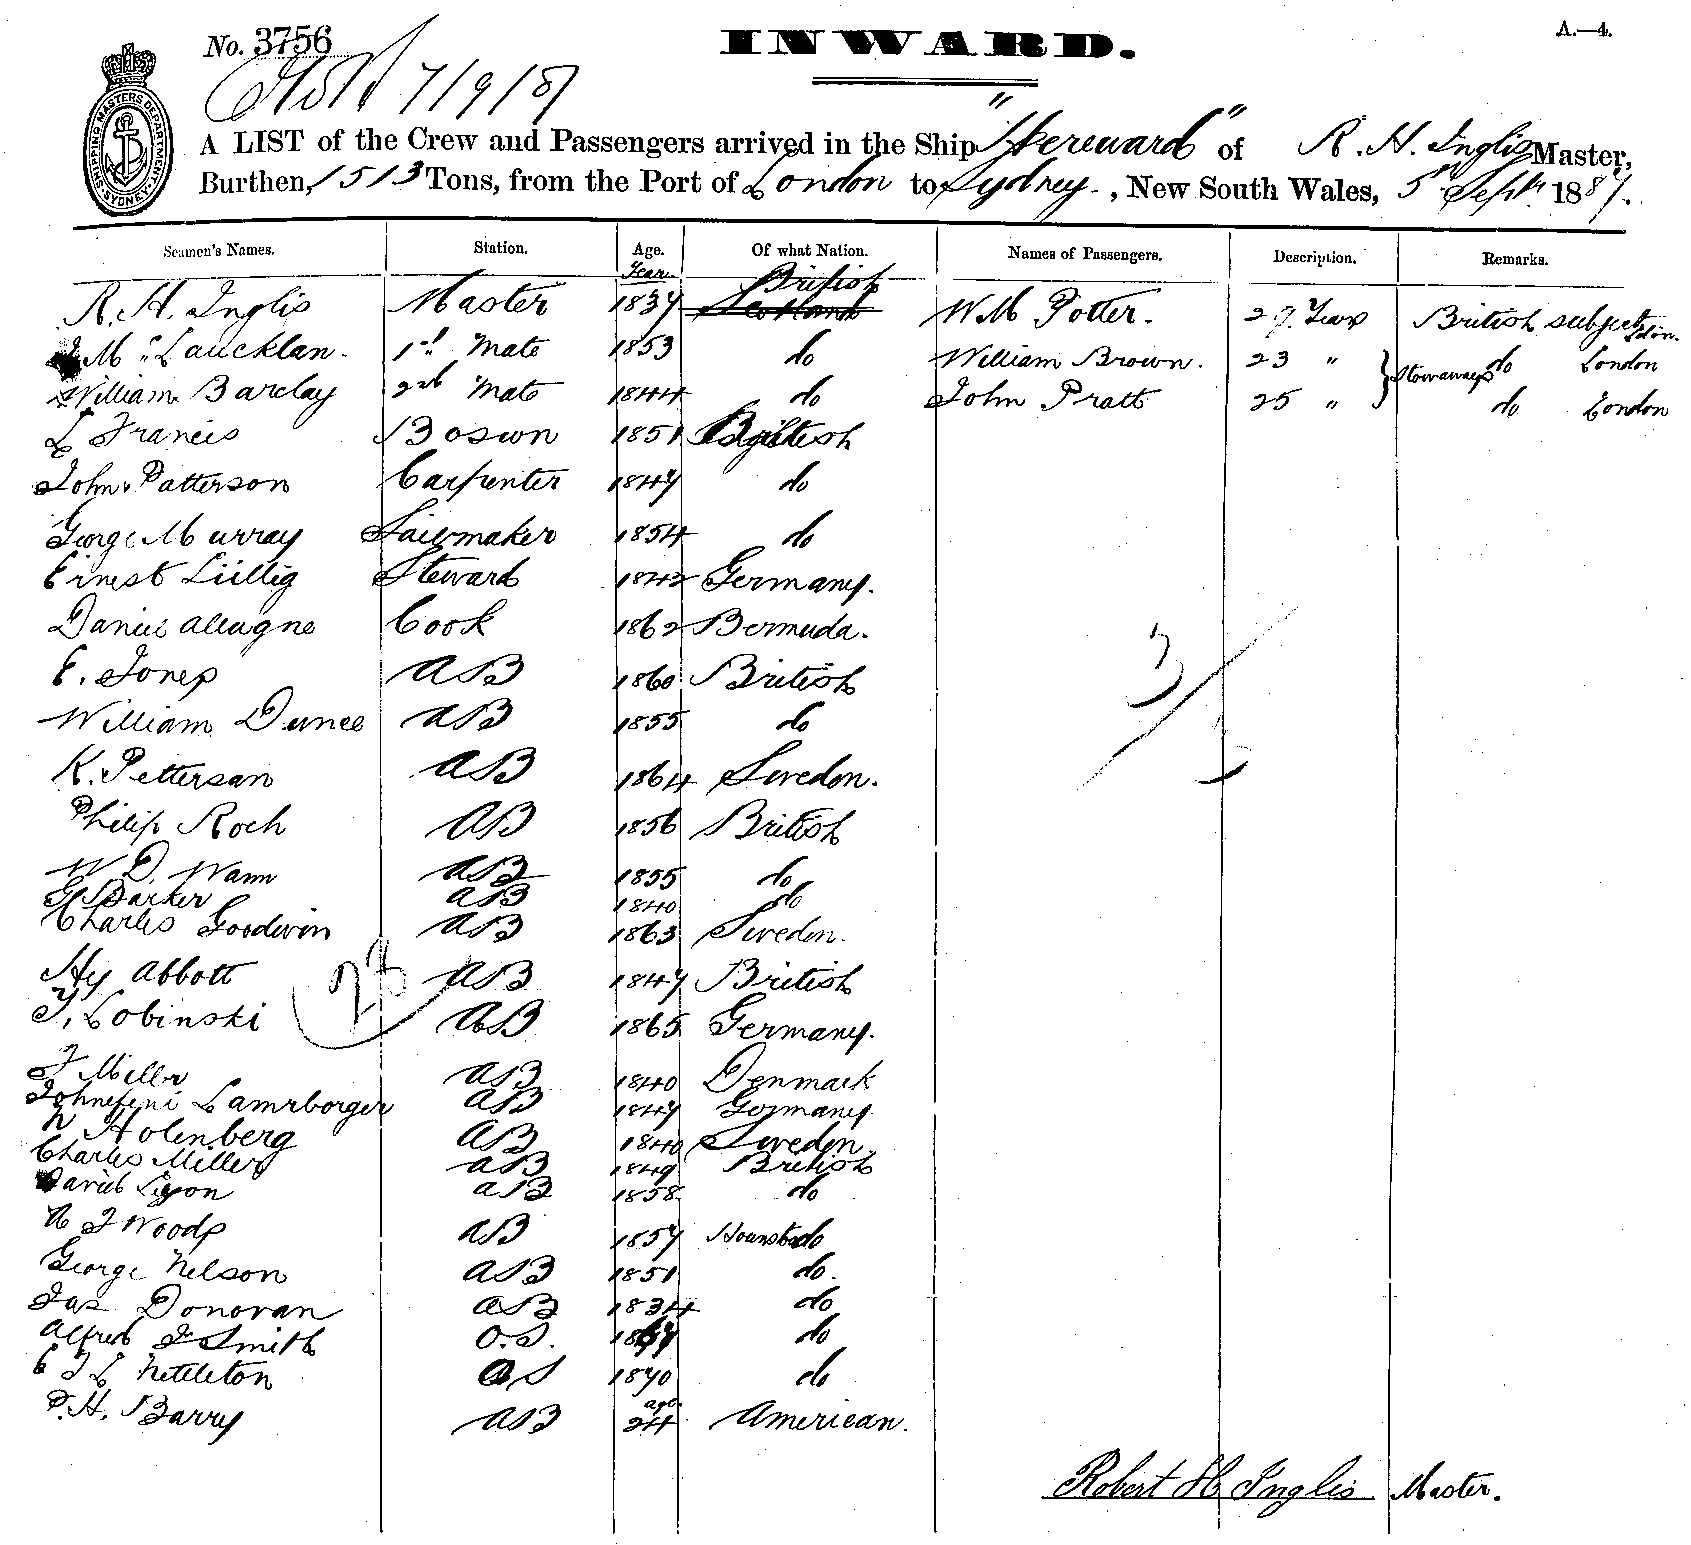 No. 3756
INWARD.
A.—4.
7/9/87
SHIPPING MASTERS DEPARTMENT SYDNEY
A LIST of the Crew and Passengers arrived in the Ship "Hereward" of R. H. Inglis Master,
Burthen, 1513 Tons, from the Port of London to Sydney, New South Wales, 5th Septr. 1887.
Seamen's Names. Station. Age. Of what Nation. Names of Passengers. Description. Remarks.
Year.
R. H. Inglis Master 1837 British W M Potter. 27 Years British subject
M"Laucklan. 1st Mate 1853 do William Brown. 23 " Stowaways do London
William Barclay 2nd Mate 1844 do John Pratt 25 " do London
L Francis Boswn 1851 British
John Patterson Carpenter 1847 do
George Murray Sailmaker 1854 do
Ernest Lüllig Steward 1842 Germany.
Daniel Cook 1862 Bermuda.
E. Jones AB 1860 British
William Dunce AB 1855 do
K. Pettersan AB 1864 Sweden.
Philip Roch AB 1856 British
W D. Wann AB 1855 do
G Barker AB 1840 do
Charles Goodwin AB 1863 Sweden.
Hy Abbott AB 1847 British
Lobinski AB 1865 Germany.
23
3
F Miller AB 1840 Denmark
Lamrborger AB 1847 Germany
N Holenberg AB 1840 Sweden.
Charles Miller AB 1849 British
David Lyon AB 1858 do
A J Woods AB 1857 do
George Nelson AB 1851 do.
Jas Donovan AB 1834 do
Alfred J Smith O.S. do
E J L Nettleton OS 1870 do
P. H. Barry AB age 24 American.
Robert H Inglis Master.